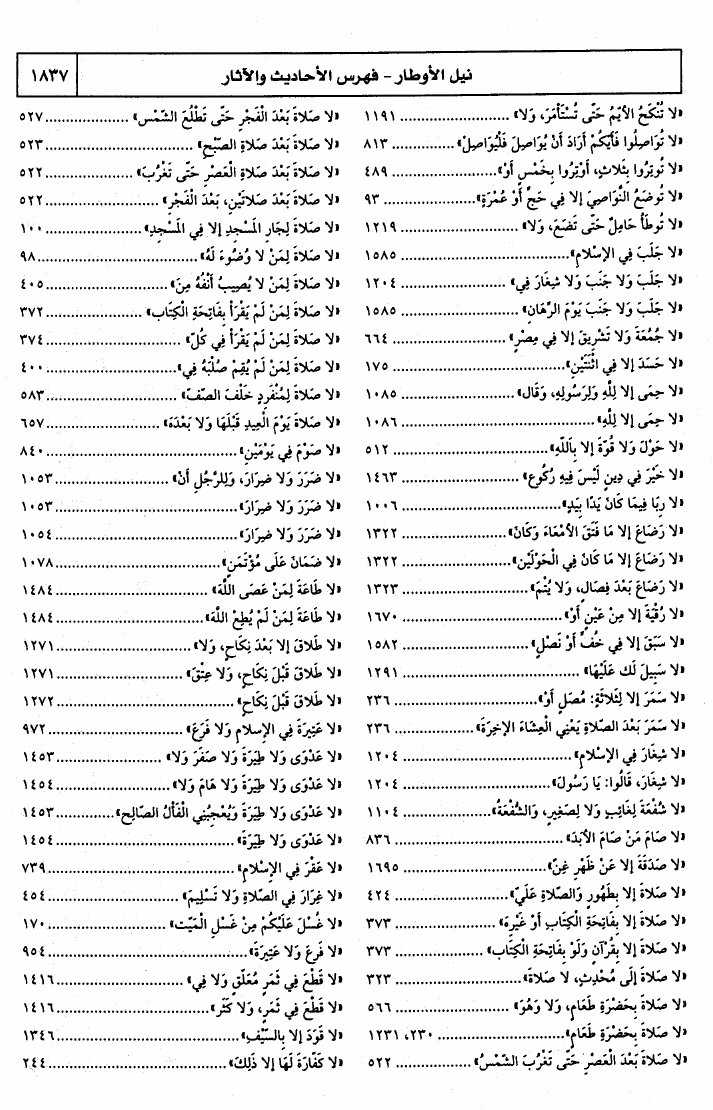 نيل الأوطار - فهرس الأحاديث والآثار ١٨٣٧
«لا تُنْكَحُ الأيِّمُ حَتَّى تُسْتَأْمَرَ، وَلا» ........................ ١١٩١
«لا تُوَاصِلُوا فَأَيُّكُمْ أَرَادَ أَنْ يُوَاصِلَ فَلْيُوَاصِلْ» .............. ٨١٣
«لا تُوتِرُوا بِثَلاثٍ، أَوْتِرُوا بِخَمْسٍ أَوْ» ....................... ٤٨٩
«لا تُوضَعُ النَّوَاصِيَ إلا فِي حَجٍّ أَوْ عُمْرَةٍ» ..................... ٩٣
«لا تُوطَأُ حَامِلٌ حَتَّى تَضَعَ، وَلا» ....................... ١٢١٩
«لا جَلَبَ فِي الإسْلامِ» ............................... ١٥٨٥
«لا جَلَبَ وَلا جَنَبَ وَلا شِغَارَ فِي» ....................... ١٢٠٤
«لا جَلَبَ وَلا جَنَبَ يَوْمَ الرِّهَانِ» ....................... ١٥٨٥
«لا جُمُعَةَ وَلا تَشْرِيقَ إلا فِي مِصْرٍ» ...................... ٦٦٤
«لا حَسَدَ إلا فِي اثْنَتَيْنِ» .............................. ١٧٥
«لا حِمَى إلا لِلَّهِ وَلِرَسُولِهِ، وَقَال» ....................... ١٠٨٥
«لا حِمَى إلا لِلَّهِ» ................................. ١٠٨٦
«لا حَوْلَ وَلا قُوَّةَ إلا بِاللَّهِ» ........................... ٥١٢
«لا خَيْرَ فِي دِينٍ لَيْسَ فِيهِ رُكُوعٌ» ...................... ١٤٦٣
«لا رِبَا فِيمَا كَانَ يَدًا بِيَدٍ» ............................ ١٠٠٦
«لا رَضَاعَ إلا مَا فَتَقَ الأمْعَاءَ وَكَانَ» .................... ١٣٢٢
«لا رَضَاعَ إلا مَا كَانَ فِي الْحَوْلَيْنِ» ...................... ١٣٢٢
«لا رَضَاعَ بَعْدَ فِصَالٍ، وَلا يُتْمَ» ........................ ١٣٢٣
«لا رُقْيَةَ إلا مِنْ عَيْنٍ أَوْ» ............................. ١٦٧٠
«لا سَبَقَ إلا فِي خُفٍّ أَوْ نَصْلٍ» ......................... ١٥٨٢
«لا سَبِيلَ لَك عَلَيْهَا» ............................... ١٢٩١
«لا سَمَرَ إلا لِثَلاثَةٍ: مُصَلٍّ أَوْ» .......................... ٢٣٦
«لا سَمَرَ بَعْدَ الصَّلاةِ يَعْنِي الْعِشَاءَ الآخِرَةَ» ................ ٢٣٦
«لا شِغَارَ فِي الإسْلامِ» .............................. ١٢٠٤
«لا شِغَارَ، قَالُوا: يَا رَسُولَ» .......................... ١٢٠٤
«لا شُفْعَةَ لِغَائِبٍ وَلا لِصَغِيرٍ، وَالشُّفْعَةُ» .................. ١١٠٤
«لا صَامَ مَنْ صَامَ الأبَدَ» .............................. ٨٣٦
«لا صَدَقَةَ إلا عَنْ ظَهْرِ غِنًى» .......................... ١٦٩٥
«لا صَلاةَ إلا بِطَهُورٍ وَالصَّلاةِ عَلَيَّ» ....................... ٤٢٤
«لا صَلاةَ إلا بِفَاتِحَةِ الْكِتَابِ أَوْ غَيْرِهِ» .................... ٣٧٣
«لا صَلاةَ إلا بِقُرْآنٍ وَلَوْ بِفَاتِحَةِ الْكِتَابِ» .................. ٣٧٣
«لا صَلاةَ إلَى مُحْدِثٍ، لا صَلاةَ» ......................... ٣٢٣
«لا صَلاةَ بِحَضْرَةِ طَعَامٍ، وَلا وَهُوَ» ....................... ٥٦٦
«لا صَلاةَ بِحَضْرَةِ طَعَامٍ» ....................... ٢٣٠، ١٢٣١
«لا صَلاةَ بَعْدَ الْعَصْرِ حَتَّى تَغْرُبَ الشَّمْسُ» ................. ٥٢٢
«لا صَلاةَ بَعْدَ الْفَجْرِ حَتَّى تَطْلُعَ الشَّمْسُ» .................. ٥٢٧
«لا صَلاةَ بَعْدَ صَلاةِ الصُّبْحِ» ........................... ٥٢٣
«لا صَلاةَ بَعْدَ صَلاةِ الْعَصْرِ حَتَّى تَغْرُبَ» ................... ٥٢٢
«لا صَلاةَ بَعْدَ صَلاتَيْنِ، بَعْدَ الْفَجْرِ» ...................... ٥٢٢
«لا صَلاةَ لِجَارِ المَسْجِدِ إلا فِي المَسْجِدِ» ................... ١٠٠
«لا صَلاةَ لِمَنْ لا وُضُوءَ لَهُ» ............................ ٩٨
«لا صَلاةَ لِمَنْ لا يُصِيبُ أَنْفُهُ مِنَ» ....................... ٤٠٥
«لا صَلاةَ لِمَنْ لَمْ يَقْرَأْ بِفَاتِحَةِ الْكِتَابِ» .................... ٣٧٢
«لا صَلاةَ لِمَنْ لَمْ يَقْرَأْ فِي كُلِّ» ......................... ٣٧٤
«لا صَلاةَ لِمَنْ لَمْ يُقِمْ صُلْبَهُ فِي» ........................ ٤٠٠
«لا صَلاةَ لِمُنْفَرِدٍ خَلْفَ الصَّفِّ» ......................... ٥٨٣
«لا صَلاةَ يَوْمَ الْعِيدِ قَبْلَهَا وَلا بَعْدَهَ» ...................... ٦٥٧
«لا صَوْمَ فِي يَوْمَيْنِ» ................................ ٨٤٠
«لا ضَرَرَ وَلا ضِرَارَ، وَلِلرَّجُلِ أَنْ» ....................... ١٠٥٣
«لا ضَرَرَ وَلا ضِرَارَ» ............................... ١٠٥٣
«لا ضَرَرَ وَلا ضِرَارَ» ............................... ١٠٥٤
«لا ضَمَانَ عَلَى مُؤْتَمَنٍ» ............................. ١٠٧٨
«لا طَاعَةَ لِمَنْ عَصَى اللَّهَ» ........................... ١٤٨٤
«لا طَاعَةَ لِمَنْ لَمْ يُطِعْ اللَّهَ» .......................... ١٤٨٤
«لا طَلاقَ إلا بَعْدَ نِكَاحٍ، وَلا» ......................... ١٢٧١
«لا طَلاقَ قَبْلَ نِكَاحٍ، وَلا عِتْقَ» ........................ ١٢٧١
«لا طَلاقَ قَبْلَ نِكَاحٍ» .............................. ١٢٧٢
«لا عَتِيرَةَ فِي الإسلامِ وَلا فَرَعَ» ......................... ٩٧٢
«لا عَدْوَى وَلا طِيَرَةَ وَلا صَفَرَ وَلا» ...................... ١٤٥٣
«لا عَدْوَى وَلا طِيَرَةَ وَلا هَامَ وَلا» ....................... ١٤٥٤
«لا عَدْوَى وَلا طِيَرَةَ وَيُعْجِبُنِي الْفَأْلُ الصَّالِح» .............. ١٤٥٣
«لا عَدْوَى وَلا طِيَرَةَ» ............................... ١٤٥٤
«لا عَقْرَ فِي الإسْلامِ» ............................... ٧٣٩
«لا غِرَارَ فِي الصَّلاةِ وَلا تَسْلِيمَ» ........................ ٤٥٤
«لا غُسْلَ عَلَيْكُمْ مِنْ غَسْلِ الْمَيِّت» ....................... ١٧٠
«لا فَرَعَ وَلا عَتِيرَةَ» ................................ ٩٥٤
«لا قَطْعَ فِي ثَمَرٍ مُعَلَّقٍ وَلا فِي» ........................ ١٤١٦
«لا قَطْعَ فِي ثَمَرٍ، وَلا كَثَرٍ» ........................... ١٤١٦
«لا قَوَدَ إلا بِالسَّيْفِ» ............................... ١٣٤٦
«لا كَفَّارَةَ لَهَا إلا ذَلِكَ» ............................. ٢٤٤